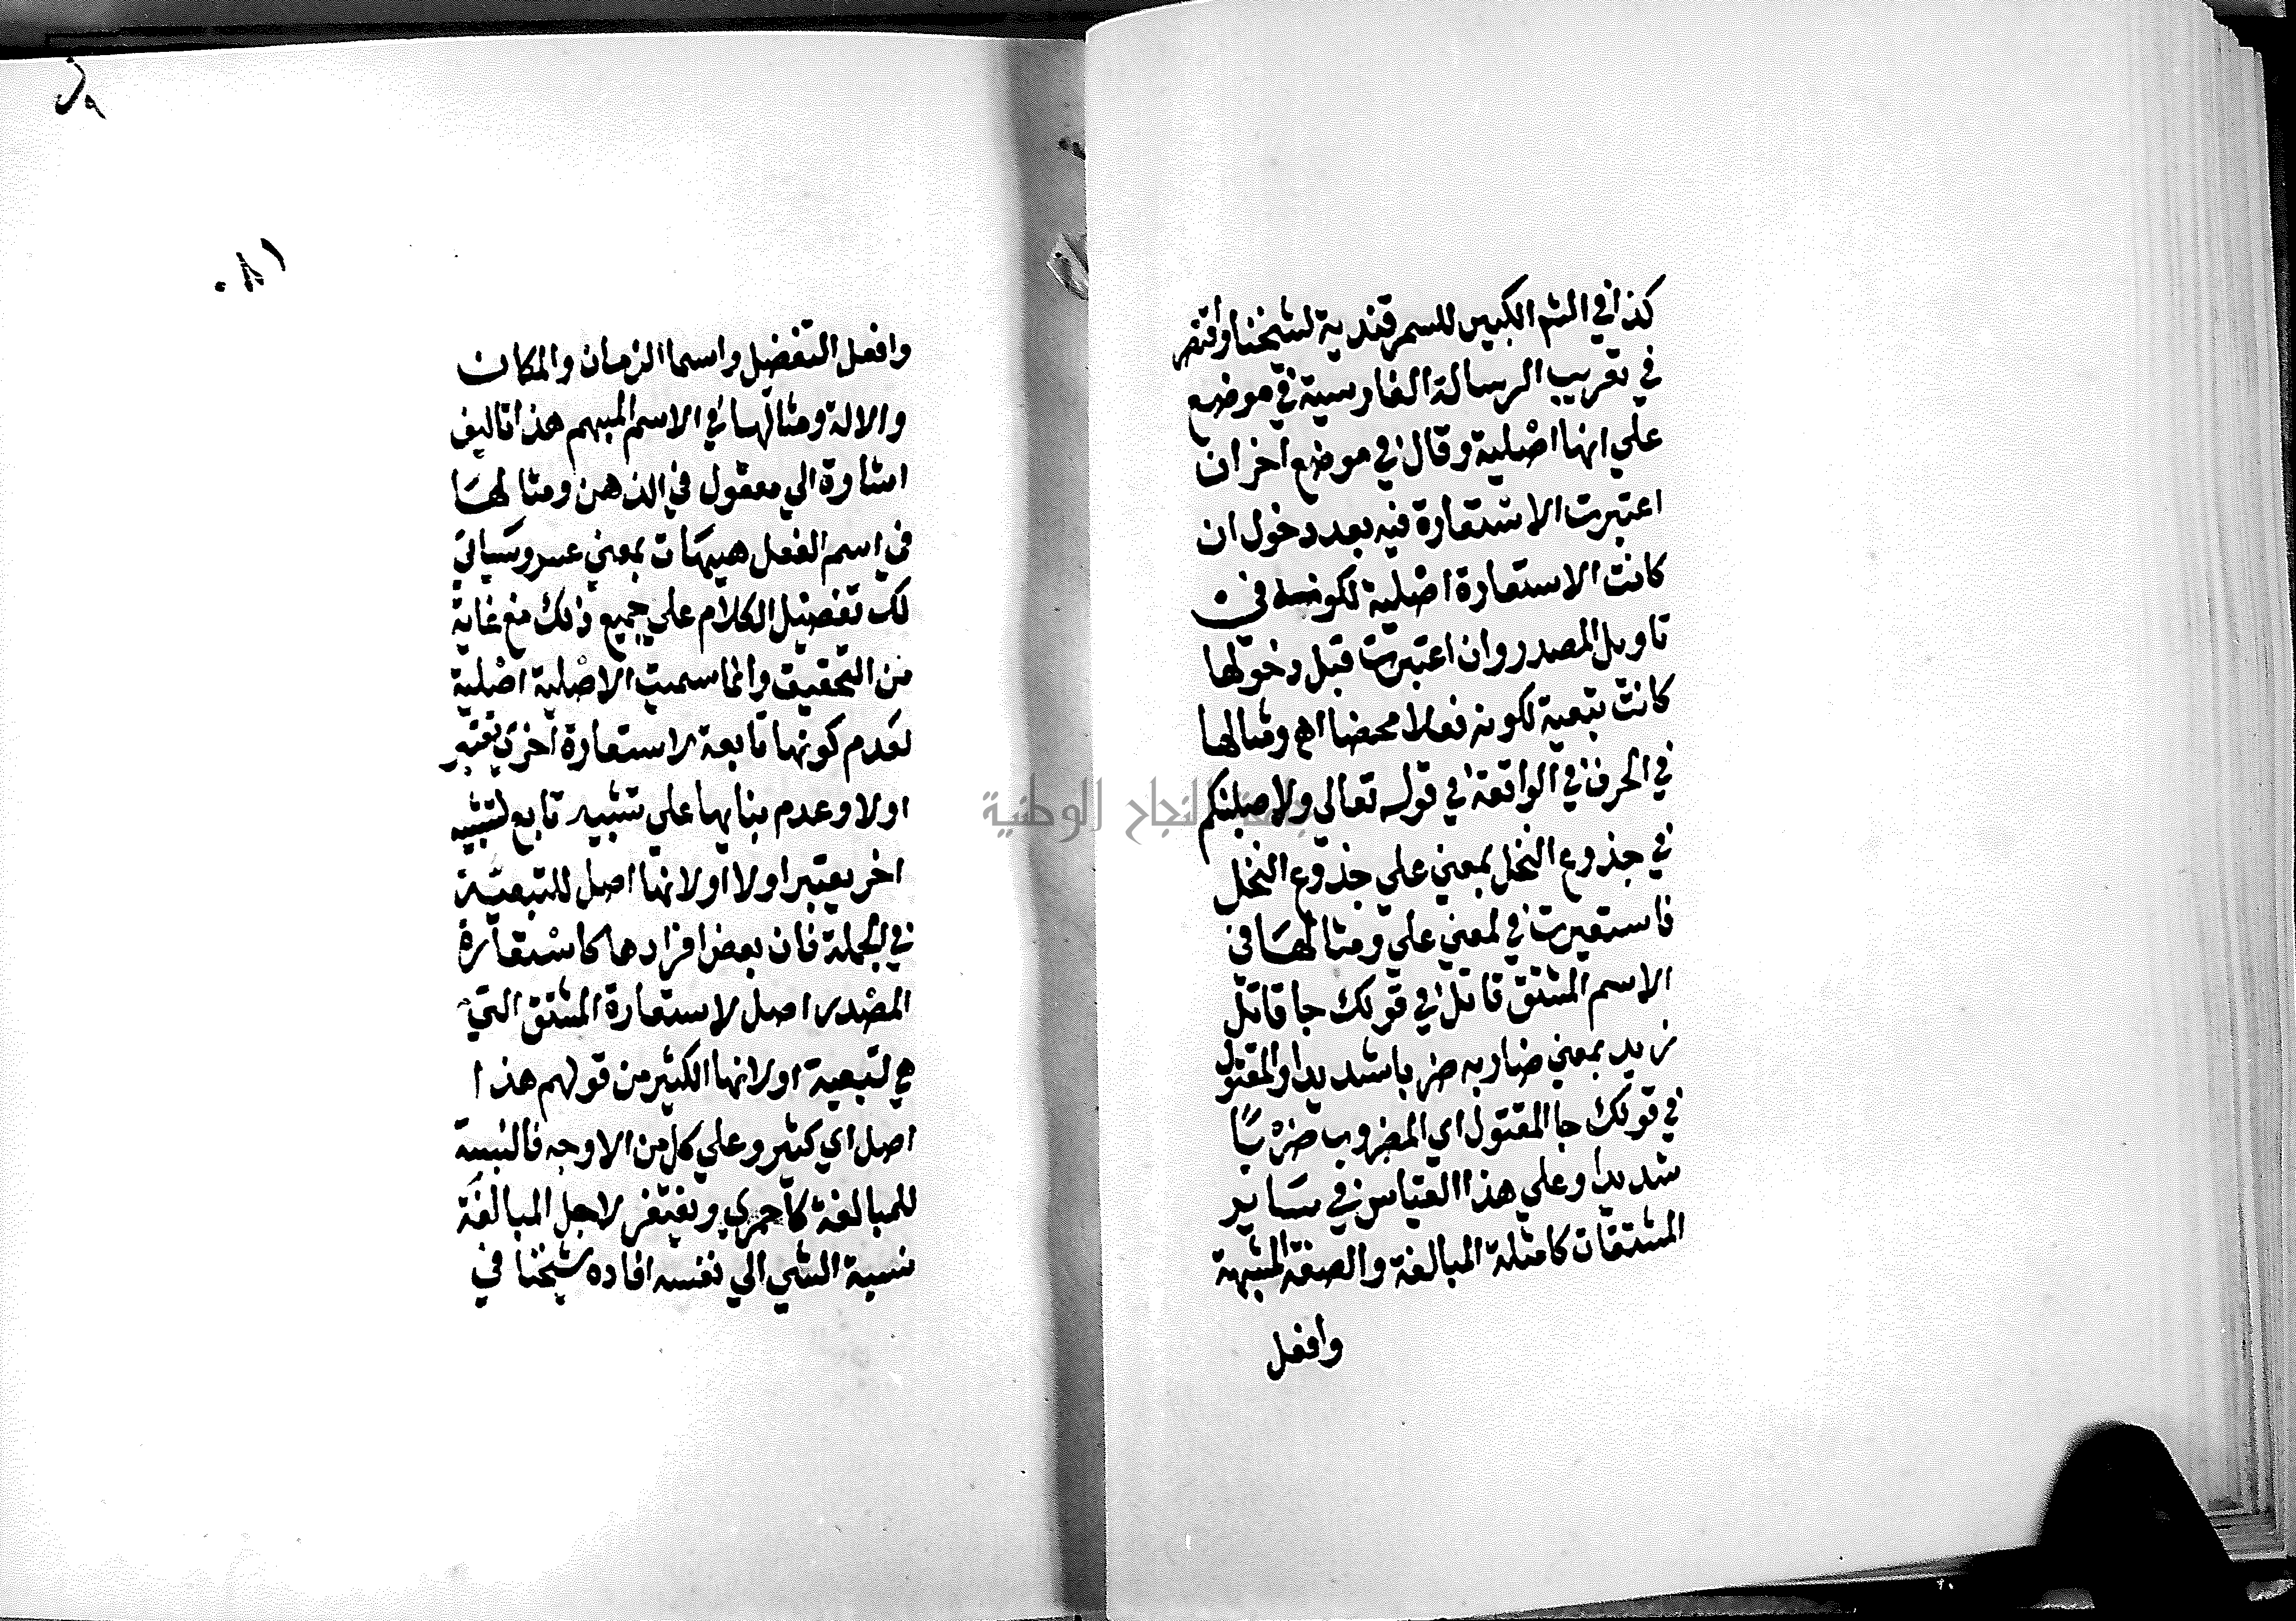 كذا في الشم الكبير للسمرقندية لشيخنا واقتصر
في تعريب الرسالة الفارسية في موضع
علي انها اصلية وقال في موضع اخر ان
اعتبرت الاستعارة فيه بعد دخول ان
كانت الاستعارة اصلية لكونه في
تاويل المصدر وان اعتبرت قبل دخولها
كانت تبعية لكونه فعلا محضا اه ومثالها
في الحرف في الواقعة في قوله تعالي ولاصلبنكم
في جذوع النخل بمعني علي جذوع النخل
فاستعيرت في لمعني علي ومثالها في
الاسم المشتق قاتل في قولك جا قاتل
زيد بمعني ضاربه ضربا شديدا والمقتول
في قولك جا المقتول اي المضروب ضربا
شديدا وعلي هذا القياس في ساير
المشتقات كامثلة المبالغة والصفة المشبهة
وافعل
وافعل التفضيل واسما الزمان والمكان
والالة ومثالها في الاسم المبهم هذا تاليف
اشارة الي معقول في الذهن ومثالها
في اسم الفعل هيهات بمعني عسر وسياتي
لك تفصيل الكلام علي جميع ذلك مع غاية
من التحقيق وانما سميت الاصلية اصلية
لعدم كونها تابعة لاستعارة اخري تعتبر
اولا وعدم بنايها علي تشبيه تابع لتشبيه
اخر يعتبر اولا او لانها اصل للتبعية
في الجملة فان بعض افرادها كاستعارة
المصدر اصل لاستعارة المشتق التي
هي تبعية او لانها الكثير من قولهم هذا
اصل اي كثير وعلي كل من الاوجه فالنسبة
للمبالغة كاحمري ويغتفر لاجل المبالغة
نسبة الشي الي نفسه افاده شيخنا في
جامعة النجاح الوطنية